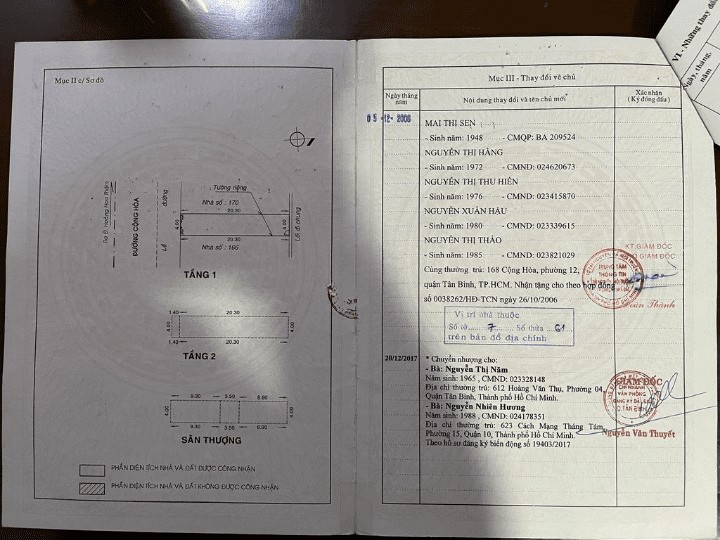 Mục II c/ Sơ đồ
Tường riêng
Nhà số : 170
20.30
4.00
4.00
20.30
Nhà số : 166
Lối đi chung
đường
Lề
ĐƯỜNG CỘNG HÒA
TẦNG 1
1.40
20.30
4.00
4.00
1.40
20.30
TẦNG 2
4.00
4.00
SÂN THƯỢNG
PHẦN DIỆN TÍCH NHÀ VÀ ĐẤT ĐƯỢC CÔNG NHẬN
PHẦN DIỆN TÍCH NHÀ VÀ ĐẤT KHÔNG ĐƯỢC CÔNG NHẬN
VI - Những thay đổi
Ngày, tháng,
năm
Mục III - Thay đổi về chủ
Ngày tháng
năm
Nội dung thay đổi và tên chủ mới
Xác nhận
(Ký đóng dấu)
05 -12- 2006
MAI THỊ SEN
- Sinh năm: 1948 - CMQP: BA 209524
NGUYỄN THỊ HẰNG
- Sinh năm: 1972 - CMND: 024620673
NGUYỄN THỊ THU HIỀN
- Sinh năm: 1976 - CMND: 023415870
NGUYỄN XUÂN HẬU
- Sinh năm: 1980 - CMND: 023339615
NGUYỄN THỊ THẢO
- Sinh năm: 1985 - CMND: 023821029
Cùng thường trú: 168 Cộng Hòa, phường 12,
quận Tân Bình, TP.HCM. Nhận tặng cho theo hợp đồng
số 0038262/HĐ-TCN ngày 26/10/2006
KT.GIÁM ĐỐC
PHÓ GIÁM ĐỐC
TRUNG TÂM
THÔNG TIN
Vị trí nhà thuộc
Số tờ 7 Số thửa 61
trên bản đồ địa chính
20/12/2017
* Chuyển nhượng cho:
- Bà: Nguyễn Thị Năm
Năm sinh: 1965 , CMND: 023328148
Địa chỉ thường trú: 612 Hoàng Văn Thụ, Phường 04,
Quận Tân Bình, Thành phố Hồ Chí Minh.
- Bà: Nguyễn Nhiên Hương
Năm sinh: 1988 , CMND: 024178351
Địa chỉ thường trú: 623 Cách Mạng Tháng Tám,
Phường 15, Quận 10, Thành phố Hồ Chí Minh.
Theo hồ sơ đăng ký biến động số 19403/2017
GIÁM ĐỐC
CHI NHÁNH
VĂN PHÒNG
ĐĂNG KÝ ĐẤT ĐAI
Q.TÂN BÌNH
Nguyễn Văn Thuyết